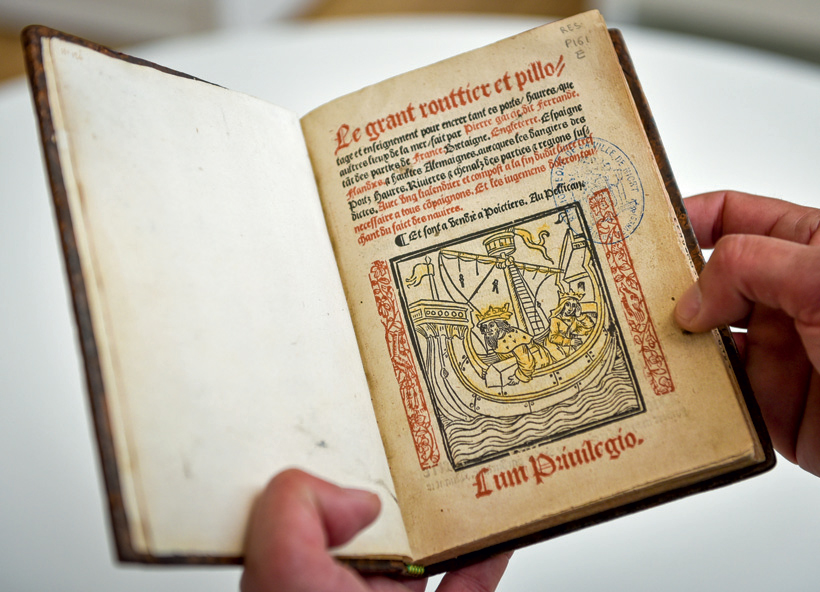 RES.
P161
E
Le grant routtier et pillo/
tage et enseignement pour encrer tant es ports/ haures/que
aultres lieux de la mer/fait par Pierre garcie dit Ferrande.
tãt des parties de France Bretaigne. Engleterre. Espaigne
Flandres & haultes Alemaignes. auecques les dangiers des
Portz Haures. Riuieres & chenalz des parties & regions sus/
dictes. Auec vng kalendier et compost a la fin dudit liure tres
necessaire a tous cõpaignons. Et les iugemens doleron tou
chant du faict des nauires.
¶ Et sont a vendre a Poictiers. Au Pellican
VILLE DE NIORT
Cum Priuilegio.